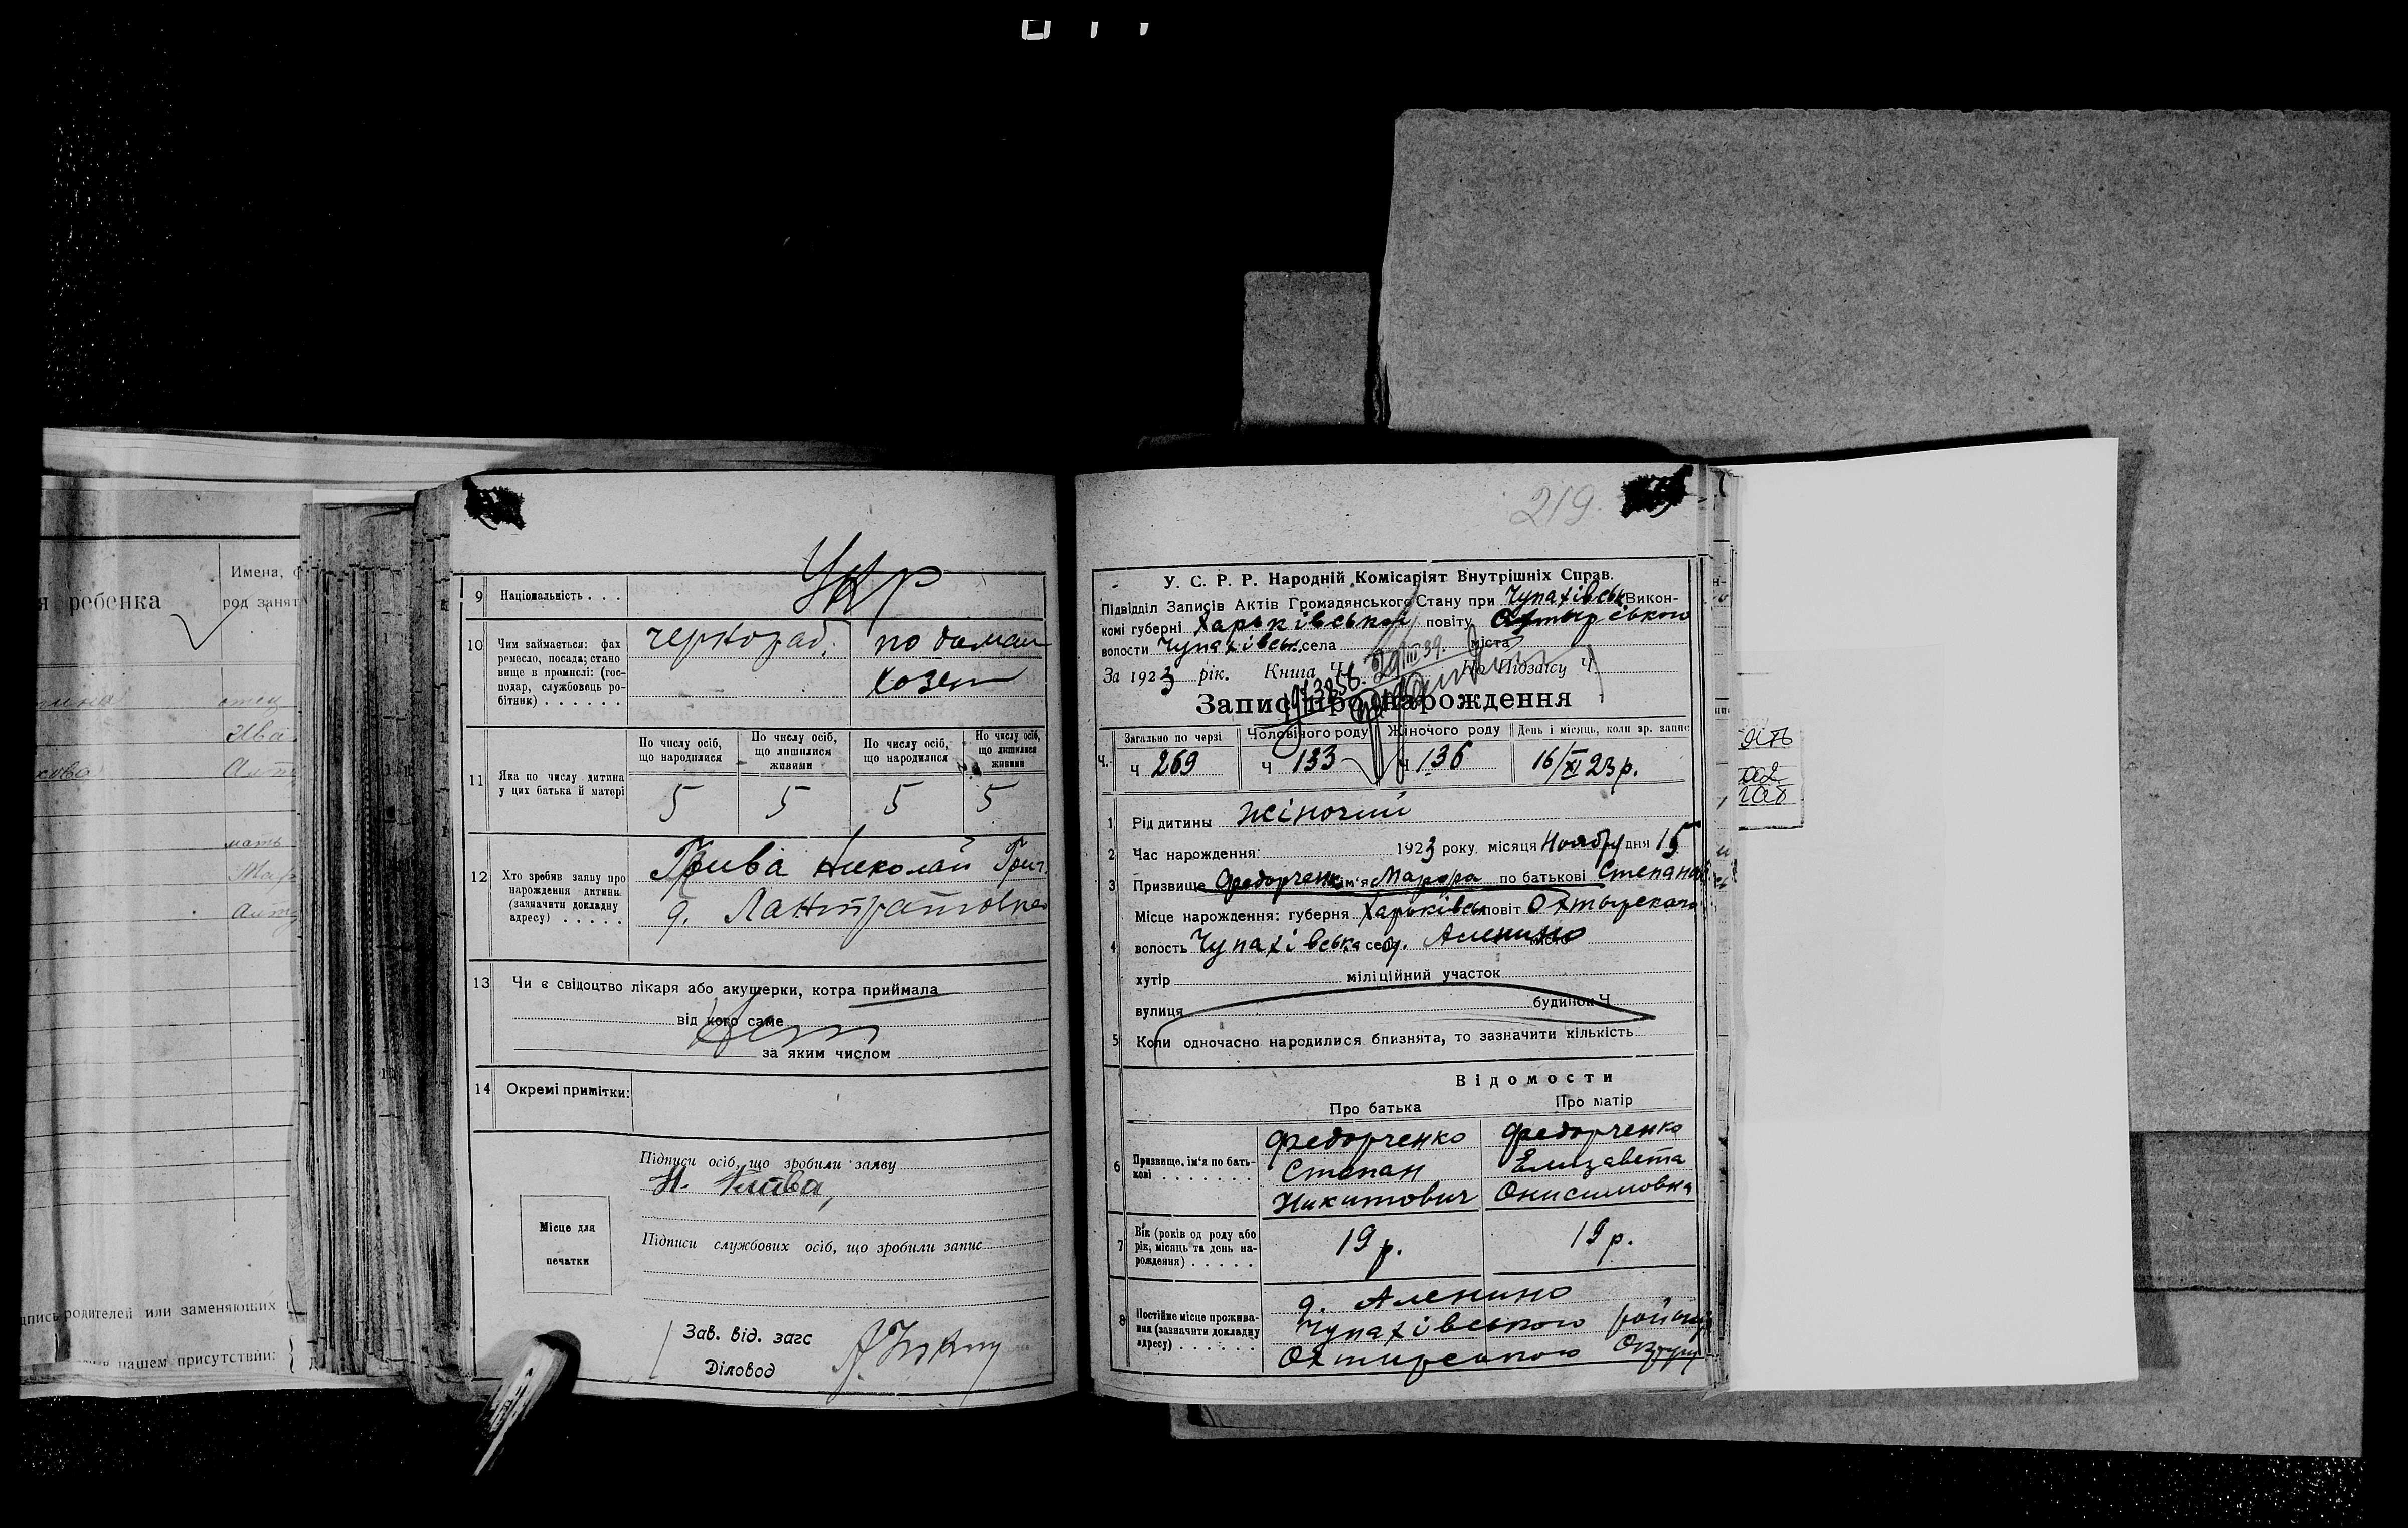 я ребенка
Имена,
род занят
отец
мать
дпись родителей или заменяющих
в нашем присутствии:
Укр
9 Національність . . .
10 Чим займається: фах
ремесло, посада; стано
вище в промислі: (гос-
подар, службовець ро-
бітник) . . . . . .
чернораб.
по домаш
хозяй
11 Яка по числу дитина
у цих батька й матері
По числу осіб,
що народилися
По числу осіб,
що лишилися
живими
По числу осіб,
що народилися
По числу осіб,
що лишилися
живими
5 5 5 5
12 Хто зробив заяву про
нарождення дитини
(зазначити докладну
адресу) . . . . .
Грива Николай Григ.
д. Лантратовка
13 Чи є свідоцтво лікаря або акушерки, котра приймала
від кого саме
за яким числом
14 Окремі примітки:
Підписи осіб, що зробили заяву
Н. Грива
Місце для
печатки
Підписи службових осіб, що зробили запис
Зав. від. загс
Діловод
219.
У. С. Р. Р. Народній Комісаріят Внутрішніх Справ.
Підвідділ Записів Актів Громадянського Стану при Чупахівськ Викон-
комі губерні Харьківської повіту Охтирського
волости Чупахівськ. села міста
За 1923 рік. Книга Ч. По Підзагсу Ч.
29/III 39.
Запис про нарождення
Ч.
Загально по черзі
Чоловічого роду
Жіночого роду
День і місяць, коли зр. запис
Ч 269
Ч 133
Ч 136
16/XI 23 р.
1 Рід дитини жіночий
2 Час нарождення: 1923 року місяця Ноября дня 15
3 Призвище Федорченко ім'я по батькові Степанов
Місце нарождення: губерня Харьківськ повіт Охтырскаго
4 волость Чупахівська село д. Аленино місто
хутір міліційний участок
вулиця будинок Ч
5 Коли одночасно народилися близнята, то зазначити кількість
Відомости
Про батька
Про матір
6 Призвище, ім'я по бать-
кові . . . . . . .
Федорченко
Степан
Никитович
Федорченко
Елизавета
Онисимовна
7 Вік (років од роду або
рік, місяць та день на-
рождення) . . . . .
19 р.
19 р.
8 Постійне місце прожива-
ння (зазначити докладну
адресу) . . . . . . .
д. Аленино
Чупахівського району
Охтирського Округу